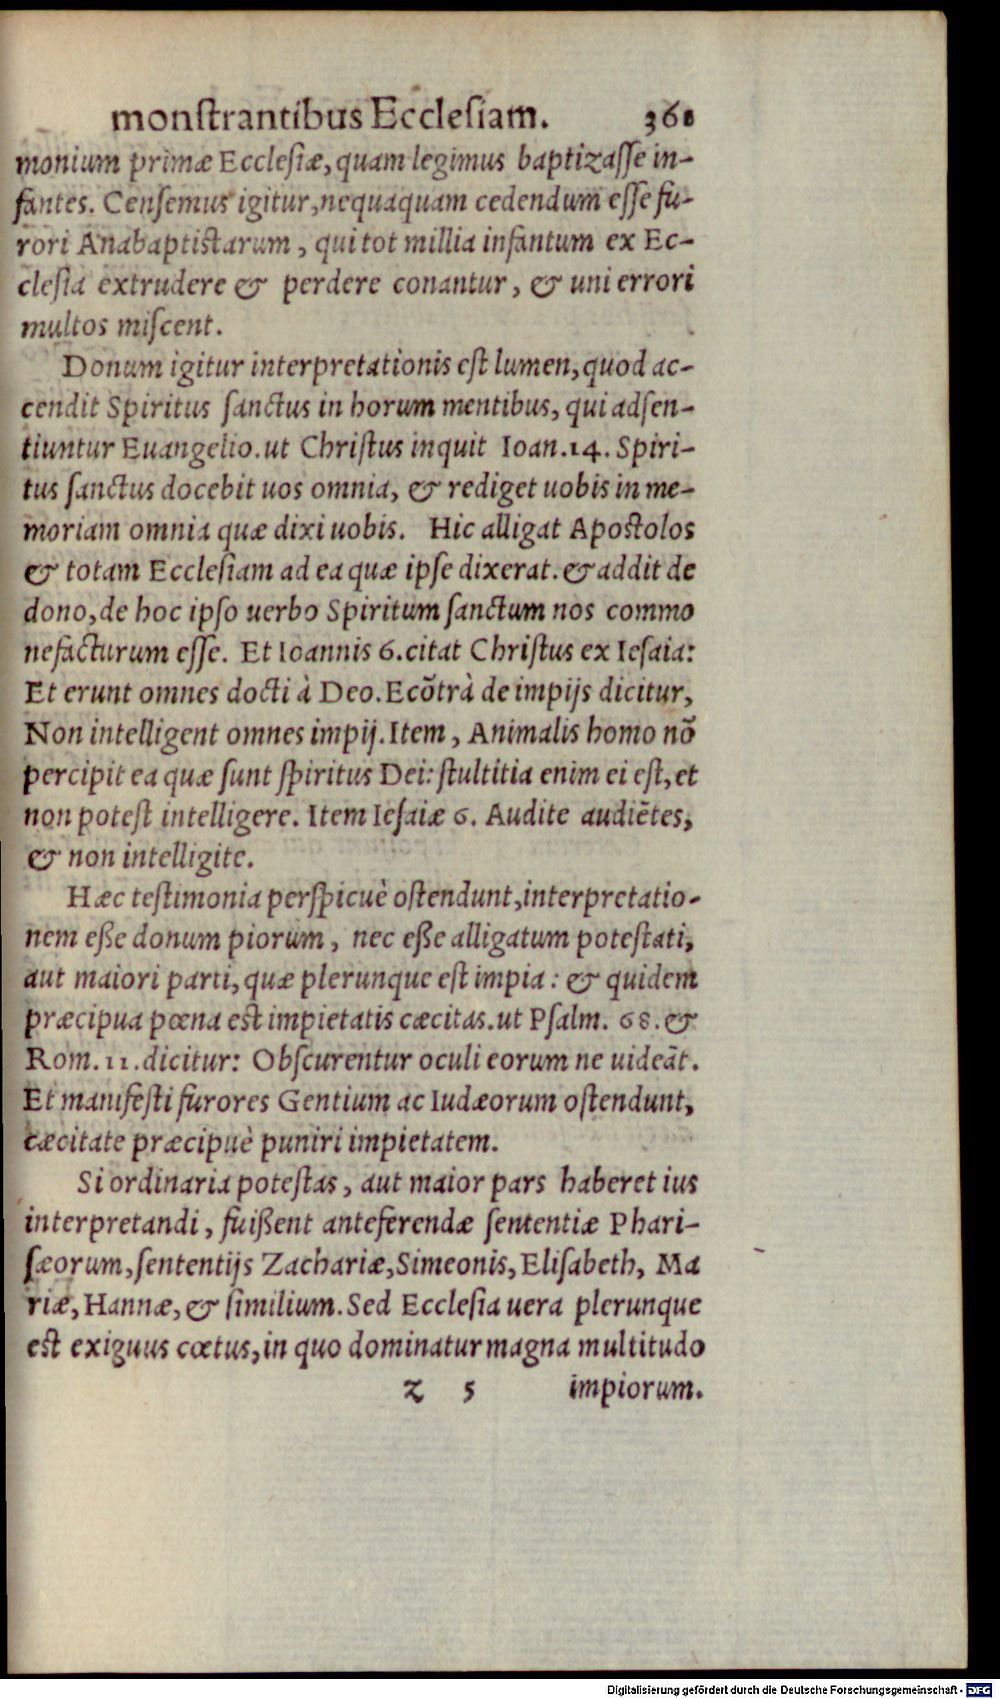 monſtrantibus Eccleſiam. 361
monium primæ Eccleſiæ, quam legimus baptizaſſe in-
fantes. Cenſemus igitur, nequaquam cedendum eſſe fu-
rori Anabaptiſtarum, qui tot millia infantum ex Ec-
cleſia extrudere & perdere conantur, & uni errori
multos miſcent.
Donum igitur interpretationis eſt lumen, quod ac-
cendit Spiritus ſanctus in horum mentibus, qui adſen-
tiuntur Euangelio. ut Chriſtus inquit Ioan. 14. Spiri-
tus ſanctus docebit uos omnia, & rediget uobis in me-
moriam omnia quæ dixi uobis. Hic alligat Apoſtolos
& totam Eccleſiam ad ea quæ ipſe dixerat. & addit de
dono, de hoc ipſo uerbo Spiritum ſanctum nos commo
nefacturum eſſe. Et Ioannis 6. citat Chriſtus ex Ieſaia:
Et erunt omnes docti à Deo. Ecõtrà de impijs dicitur,
Non intelligent omnes impij. Item, Animalis homo nõ
percipit ea quæ ſunt ſpiritus Dei: ſtultitia enim ei eſt, et
non poteſt intelligere. Item Ieſaiæ 6. Audite audiẽtes,
& non intelligite.
Hæc teſtimonia perſpicuè oſtendunt, interpretatio-
nem eße donum piorum, nec eße alligatum poteſtati,
aut maiori parti, quæ plerunque eſt impia: & quidem
præcipua pœna eſt impietatis cæcitas. ut Pſalm. 68. &
Rom. 11. dicitur: Obſcurentur oculi eorum ne uideãt.
Et manifeſti furores Gentium ac Iudæorum oſtendunt,
cæcitate præcipuè puniri impietatem.
Si ordinaria poteſtas, aut maior pars haberet ius
interpretandi, fuißent anteferendæ ſententiæ Phari-
ſæorum, ſententijs Zachariæ, Simeonis, Eliſabeth, Ma
riæ, Hannæ, & ſimilium. Sed Eccleſia uera plerunque
eſt exiguus cœtus, in quo dominatur magna multitudo
z 5 impiorum.
Digitalisierung gefördert durch die Deutsche Forschungsgemeinschaft - DFG